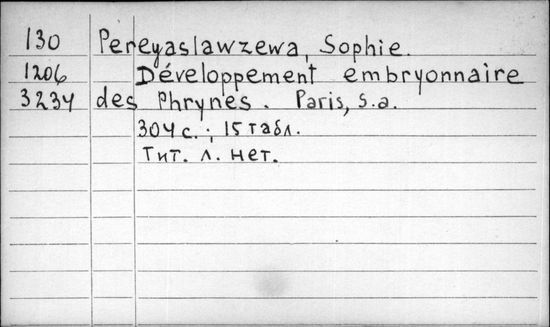 130 Pereyaslawzewa, Sophie.
1206 Développement embryonnaire
3234 des Phrynes. Paris, s.a.
304 с.; 15 табл.
Тит. л. нет.